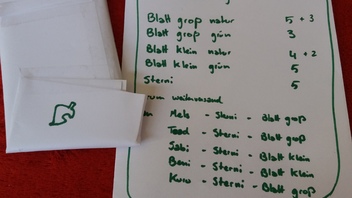 Blatt groß natur 5 + 3
Blatt groß grün 3
Blatt klein natur 4 + 2
Blatt klein grün 5
Sterni 5
zum weiterversand
Mela - Sterni - Blatt groß
Toad - Sterni - Blatt groß
Sabi - Sterni - Blatt klein
Beni - Sterni - Blatt klein
Kuro - Sterni - Blatt groß